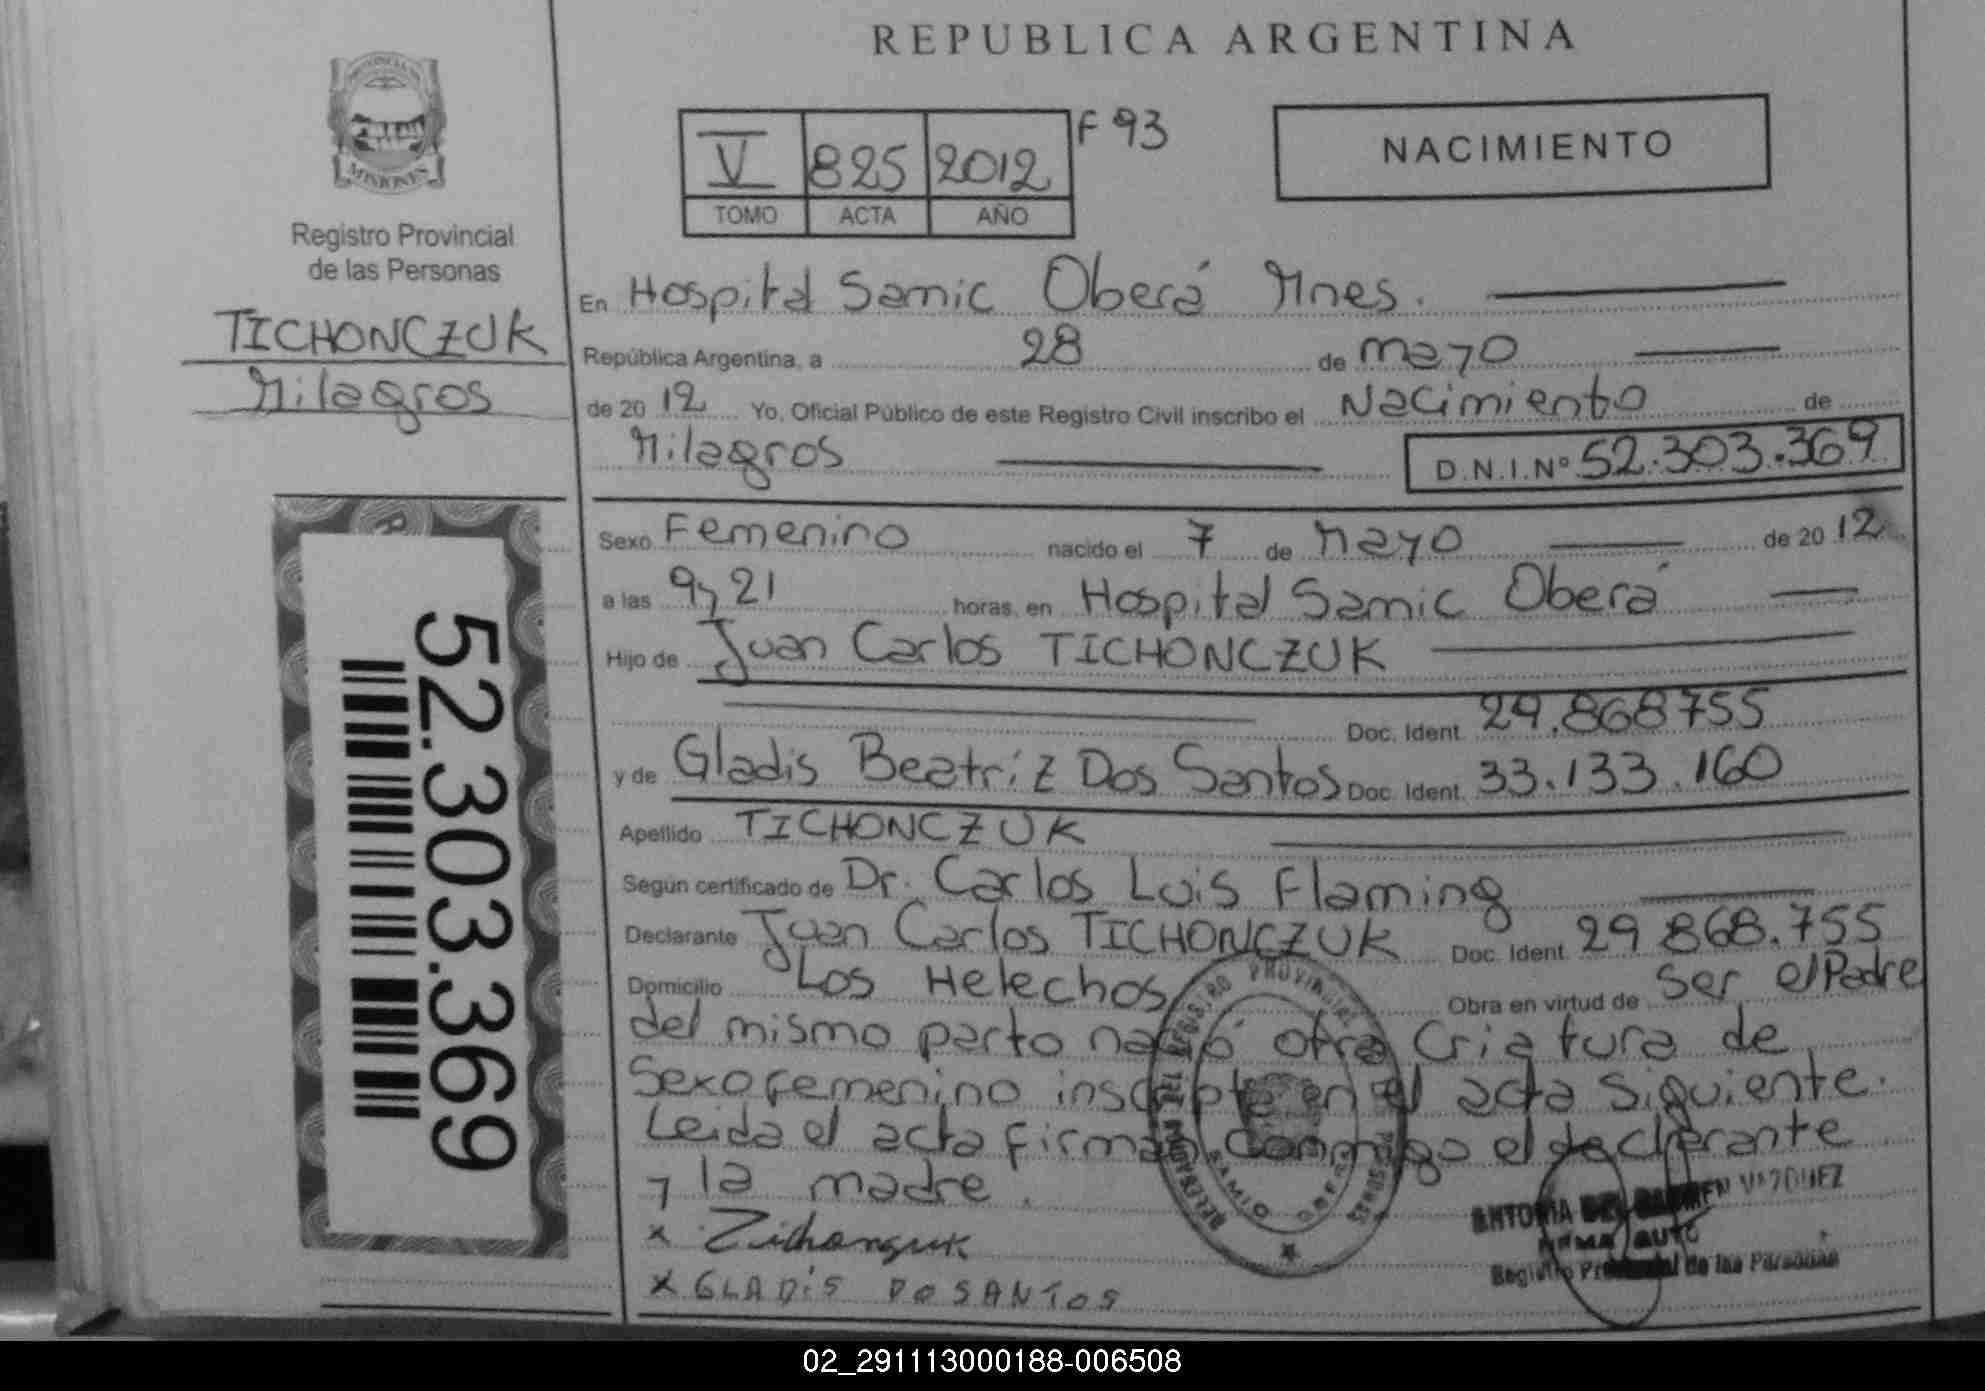 REPUBLICA ARGENTINA
PROVINCIA DE
MISIONES
Registro Provincial
de las Personas
TICHONCZUK
Milagros
52.303.369
V 825 2012 F 93
TOMO ACTA AÑO
NACIMIENTO
En Hospital Samic Oberá Mnes.
República Argentina, a 28 de mayo
de 2012 Yo, Oficial Público de este Registro Civil inscribo el Nacimiento de
Milagros D.N.I.Nº 52.303.369
Sexo Femenino nacido el 7 de Mayo de 2012
a las 9y 21 horas, en Hospital Samic Oberá
Hijo de Juan Carlos TICHONCZUK
Doc. Ident. 29.868755
y de Gladis Beatriz Dos Santos Doc. Ident. 33.133.160
Apellido TICHONCZUK
Según certificado de Dr. Carlos Luis Flaming
Declarante Juan Carlos TICHONCZUK Doc. Ident. 29 868.755
Domicilio Los Helechos Obra en virtud de Ser el Padre
del mismo parto nació otra Criatura de
Sexo femenino inscripta en el acta siguiente.
Leida el acta firman conmigo el declarante
y la madre.
x
x GLADiS DOSANTOS
REGISTRO PROVINCIAL
SAMIC
ANTONIA DEL CARMEN VAZQUEZ
FIRMA AUTO
Registro Provincial de las Personas
02_291113000188-006508